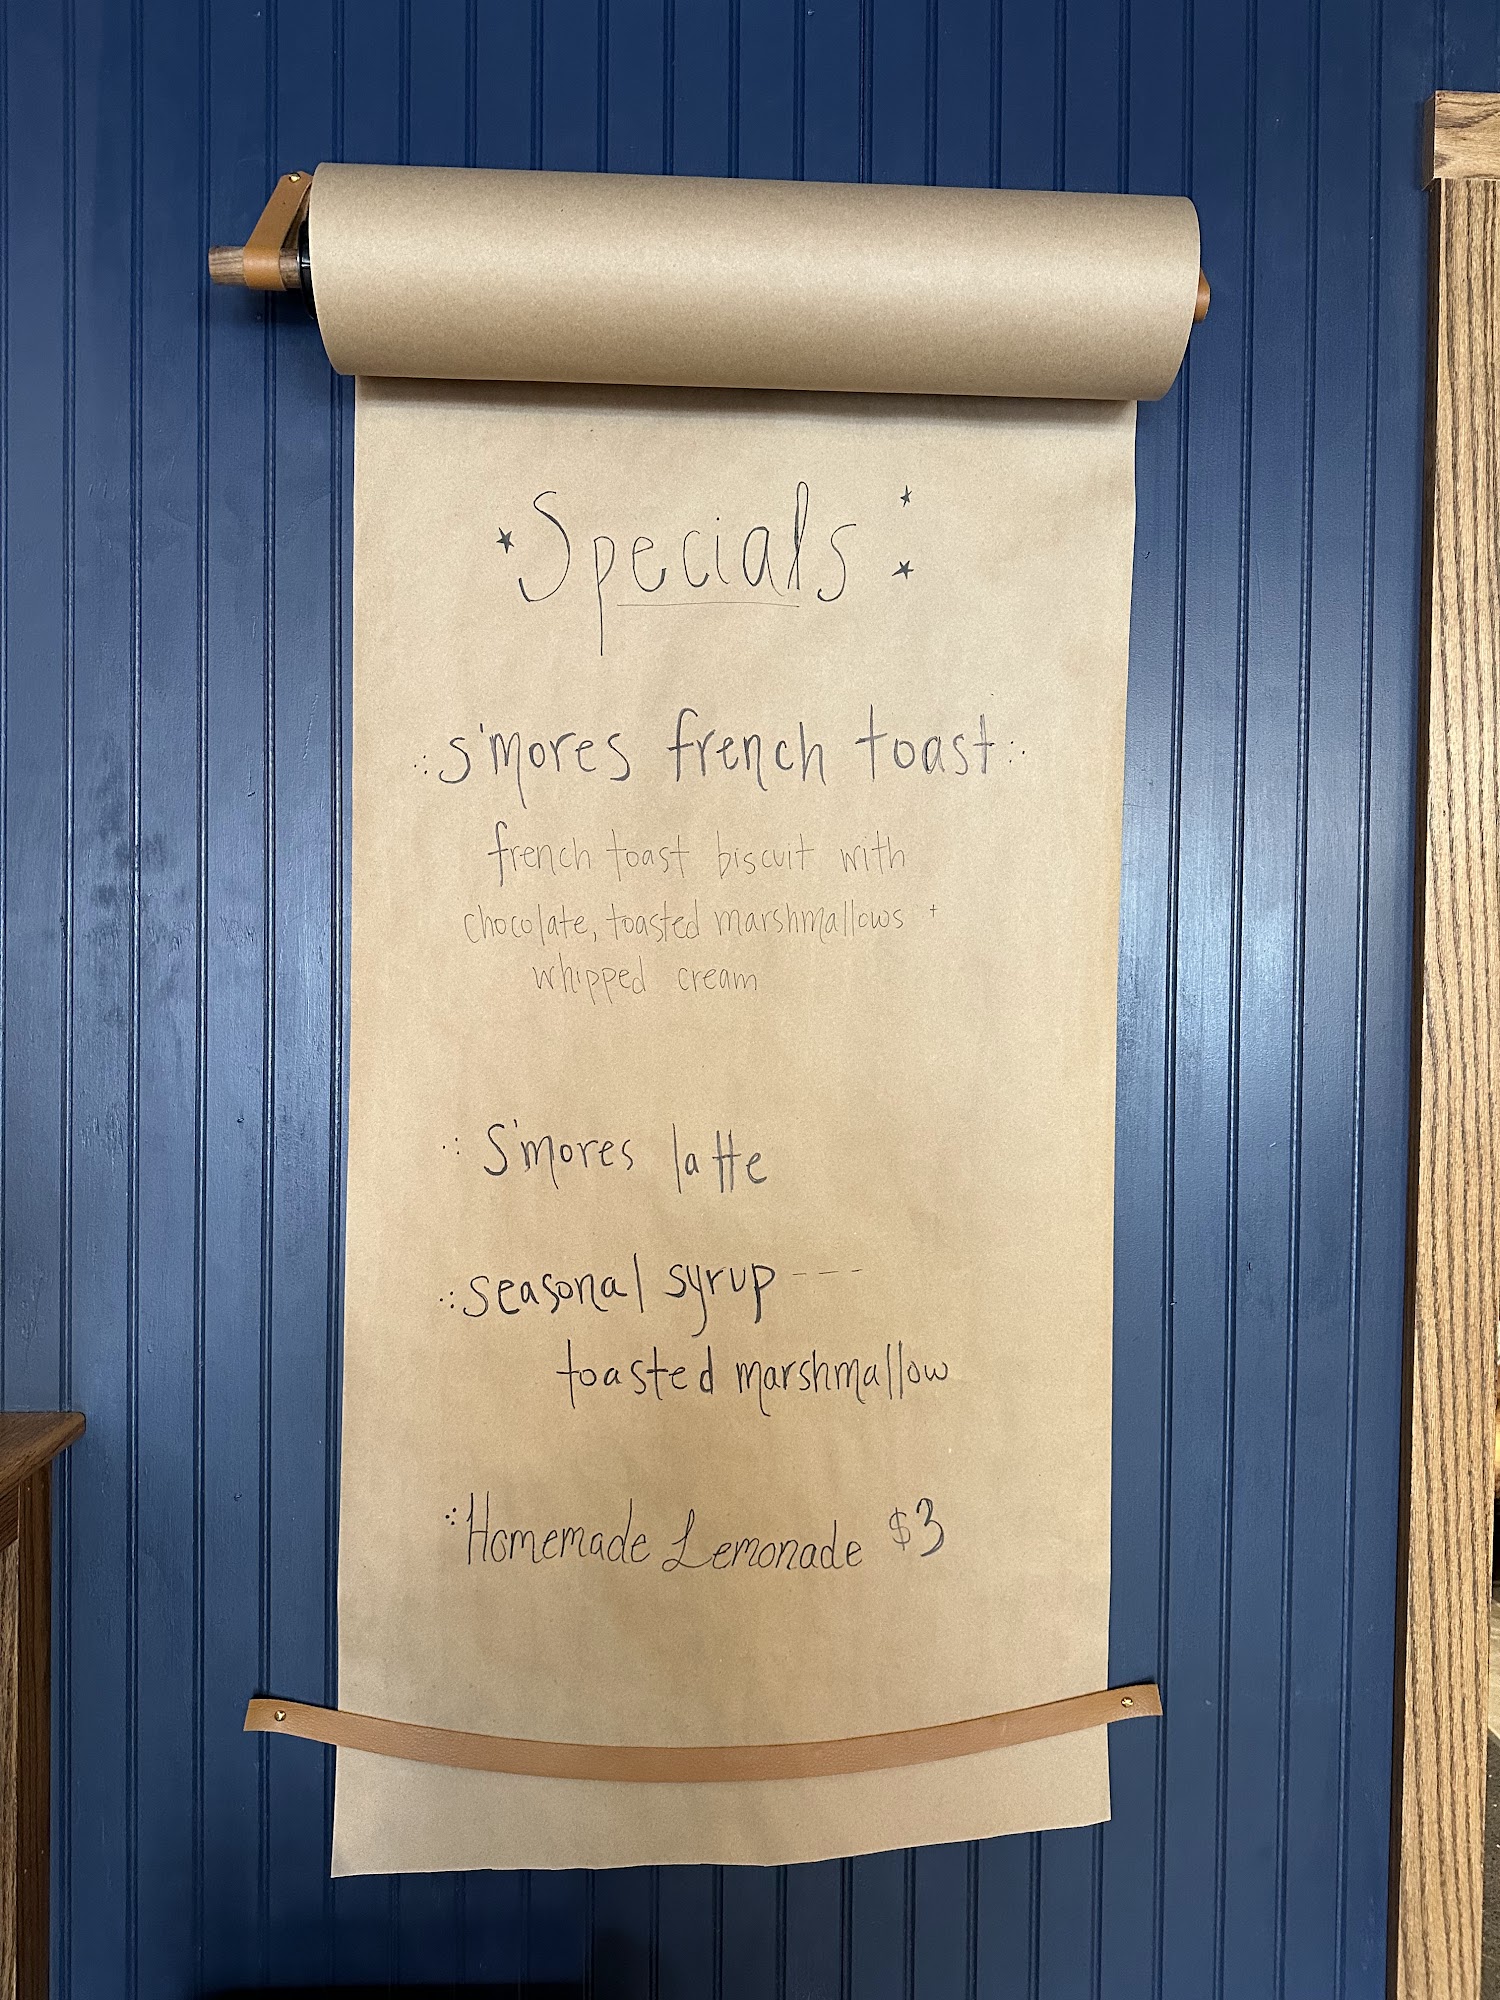 Specials
s'mores french toast
french toast biscuit with
chocolate, toasted marshmallows +
whipped cream
S'mores latte
seasonal syrup ---
toasted marshmallow
Homemade Lemonade $3